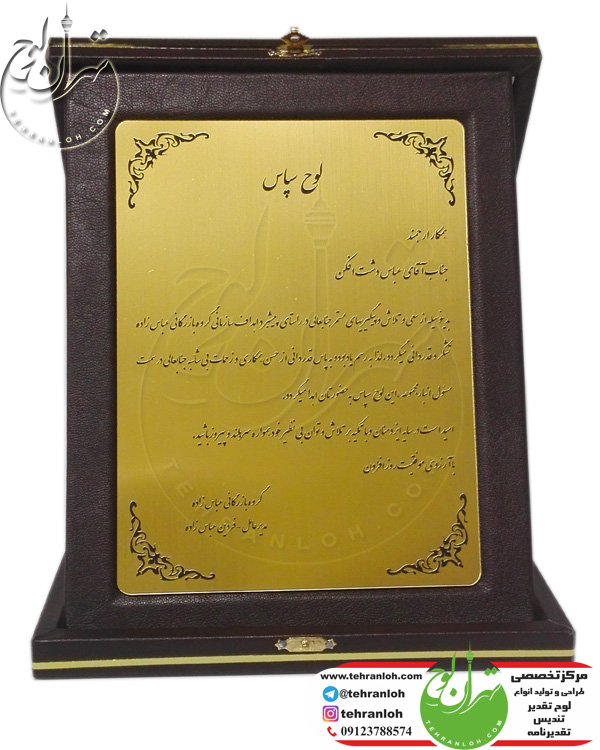 تهران لوح
TEHRANLOH.COM
لوح سپاس
همکار ارجمند
جناب آقای عباس دشت افکن
بدینوسیله از سعی و تلاش و پیگیریهای مستمر جنابعالی در راستای پیشبرد اهداف سازمانی گروه بازرگانی عباس زاده
تشکر و قدردانی میگردد، لذا به رسم یادبود و به پاس قدردانی از حسن همکاری و زحمات بی شائبه جنابعالی در سمت
مسئول انبار مجموعه، این لوح سپاس به حضورتان اهدا میگردد.
امید است در سایه ایزد منان و با تکیه بر تلاش و توان بی نظیر خود همواره سربلند و پیروز باشید.
با آرزوی موفقیت روزافزون
گروه بازرگانی عباس زاده
مدیرعامل - فردین عباس زاده
تهران لوح
TEHRANLOH.COM
www.tehranloh.com
@tehranloh
tehranloh
09123788574
تهران لوح
TEHRANLOH.COM
مرکزتخصصی
طراحی و تولید انواع
لوح تقدیر
تندیس
تقدیرنامه